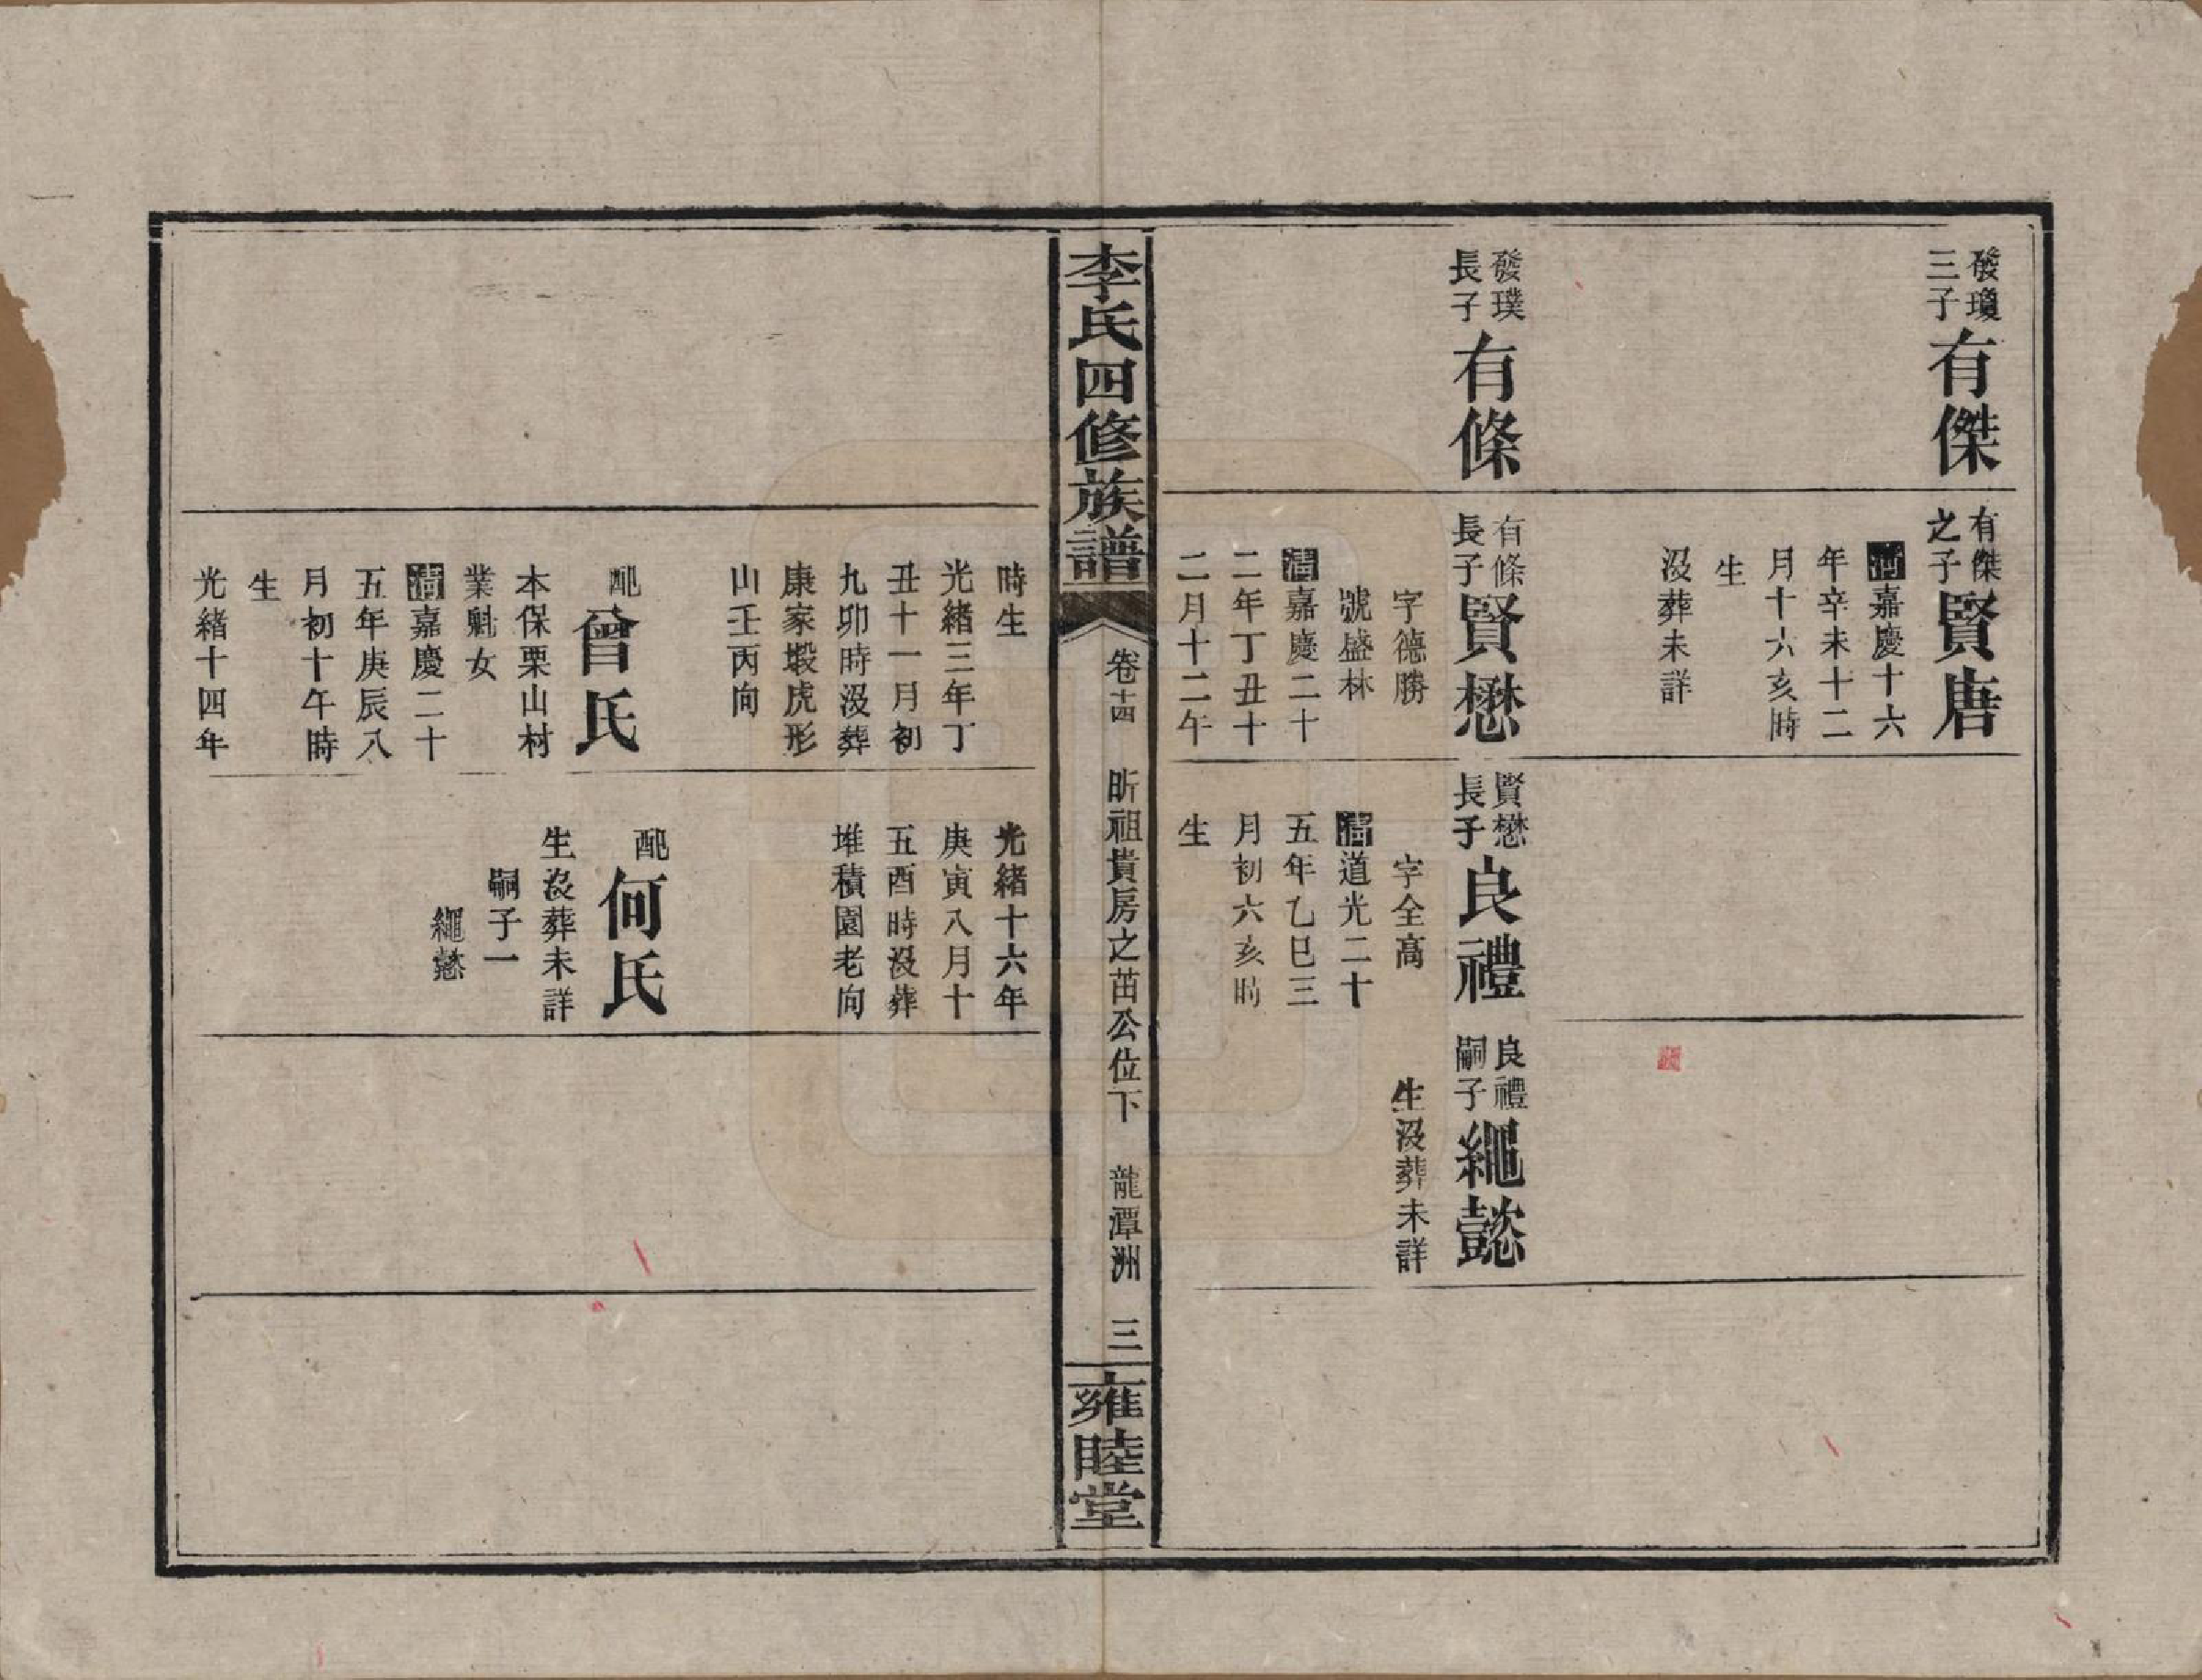 發瓊
三子
有傑
有傑
之子
賢唐
清嘉慶十六
年辛未十二
月十六亥時
生
沒葬未詳
發璞
長子
有條
有條
長子
賢懋
字德勝
號盛林
清嘉慶二十
二年丁丑十
二月十二午
賢懋
長子
良禮
字全高
清道光二十
五年乙巳三
月初六亥時
生
良禮
嗣子
繩懿
生沒葬未詳
李氏四修族譜
卷十四
昕祖貴房之苗公位下
龍潭洲
三
雍睦堂
時生
光緒三年丁
丑十一月初
九卯時沒葬
康家塅虎形
山壬丙向
配
曾氏
本保栗山村
業魁女
清嘉慶二十
五年庚辰八
月初十午時
生
光緒十四年
光緒十六年
庚寅八月十
五酉時沒葬
堆積園老向
配
何氏
生沒葬未詳
嗣子一
繩懿